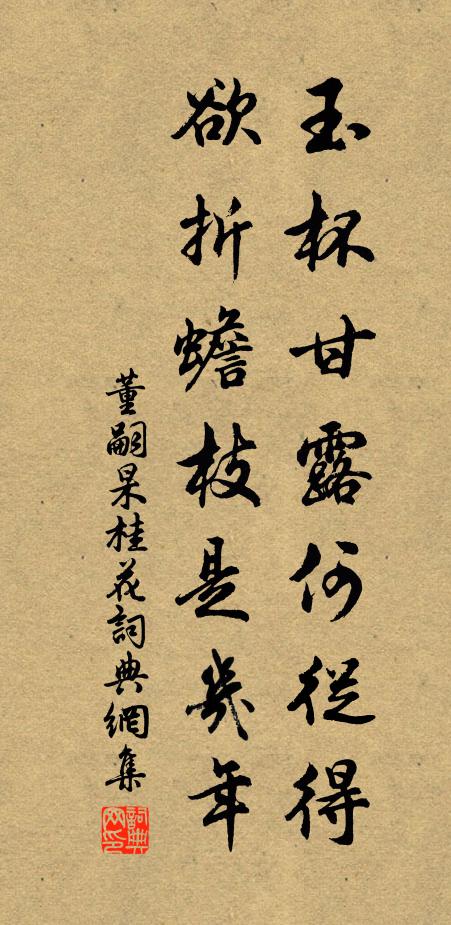 玉杯甘露何從得
欲折蟾枝是幾年
董嗣杲桂花詞典網集
詞典网印